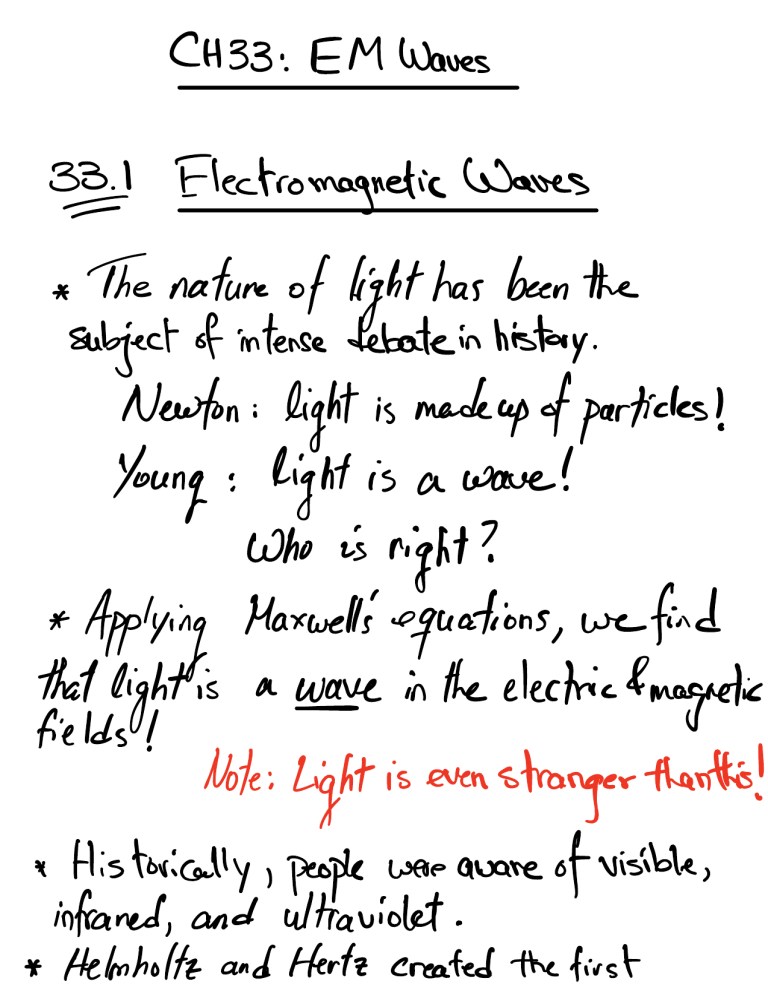 CH33: EM Waves
33.1 Electromagnetic Waves
* The nature of light has been the
subject of intense debate in history.
Newton: light is made up of particles!
Young: light is a wave!
Who is right?
* Applying Maxwell's equations, we find
that light is a wave in the electric & magnetic
fields!
Note: Light is even stranger than this!
* Historically, people were aware of visible,
infrared, and ultraviolet.
* Helmholtz and Hertz created the first